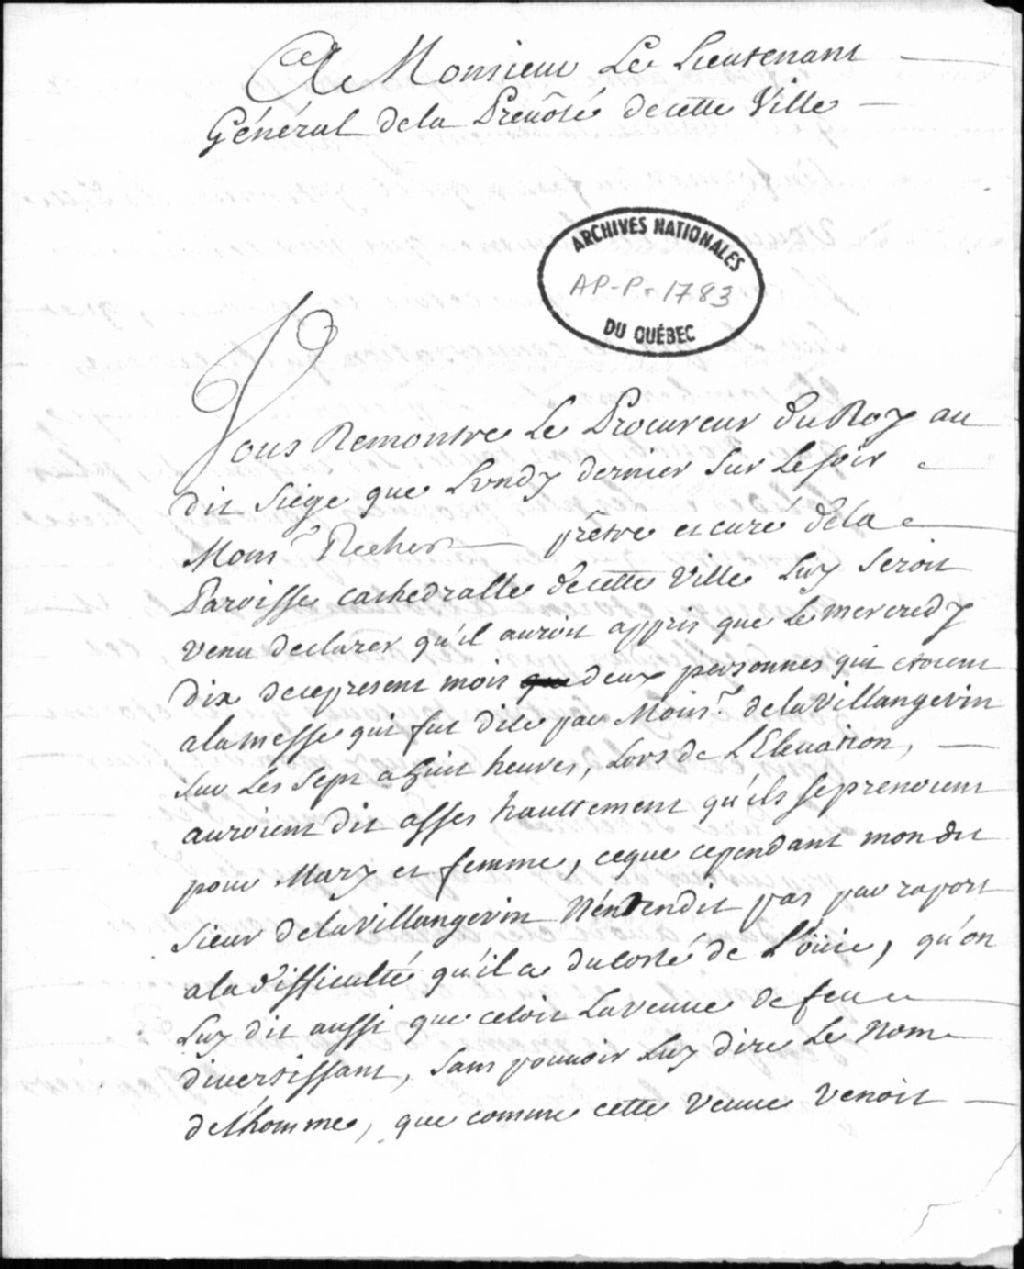 A Monsieur Le Lieutenant
Général dela Prevôté decette Ville
ARCHIVES NATIONALES
AP-P-1783
DU QUÉBEC
Vous Remontre Le Procureur du Roy au
dit siège que Lundy dernier sur Le soir
Mons.r Recher prêtre et curé dela
Paroisse cathedralle decette Ville Luy seroit
venu declarer qu'il auroit appris que Le mercredy
dix decepresent mois deux personnes qui etoient
alamesse qui fut dite par Mons.r delavillangevin
sur Les sept a huit heures, Lors de L'Elevation,
auroient dit assés hauttement qu'ils seprenoient
pour Mary et femme, ceque cependant mondit
sieur delavillangevin N'entendit pas par raport
aladifficulté qu'il a ducosté de L'ouïe, qu'on
Luy dit aussi que cetoit Laveuve defeu
divertissant, sans pouvoir Luy dire Le Nom
delhomme, que comme cette veuve venoit